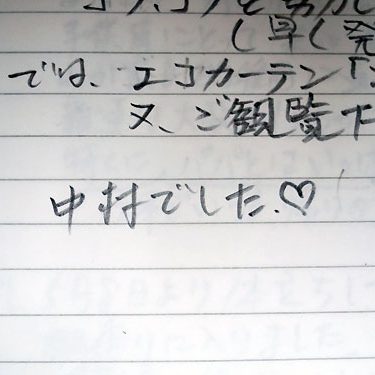 し早く発
では、エコカーテン「
又、ご観覧下
中村でした.♡